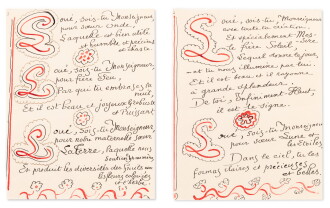 Loué, sois-tu Monseigneur
pour sœur Onde
Laquelle est bien utile
et humble et précieuse
et chaste.
Loué, sois-tu Monseigneur
pour frère Feu,
Par qui tu embrases la
nuit,
Et il est beau et joyeux & robuste
et Puissant
Loué, sois-tu, Monseigneur
pour notre maternelle sœur
La Terre, laquelle nous
soutient
Et produit les diversités des fruits
et l'herbe
Loué, sois-tu, Monseigneur
avec toute ta création
Et spécialement Mes-
sire Frère Soleil.
Lequel donne le jour,
et tu nous illumine, par lui.
Et il est beau et il rayonne
à grande splendeur.
De toi, Infiniment Haut,
il est le signe.
Loué, sois-tu, Monseigneur
pour sœur Lune et
les Etoiles
Dans le ciel, tu les
formas claires et précieuses
et belles.